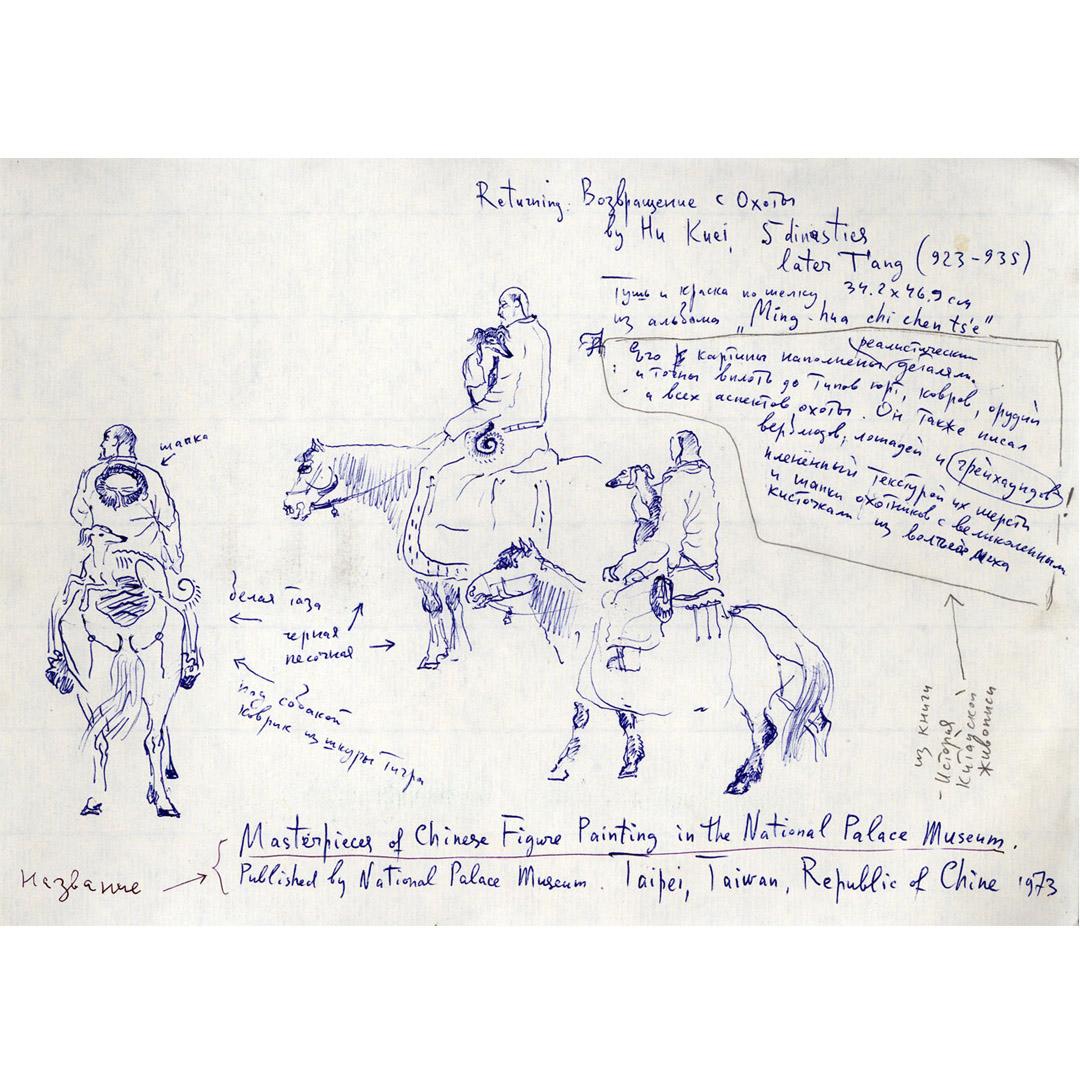 Returning. Возвращение с Охоты
by Hu Kuei, 5 dinasties
later T'ang (923-935)
Тушь и краска по шелку 34.2 x 46.9 см
из альбома „Ming-hua chi chen ts'e"
реалистическими
Его картины наполнены деталями.
и точны вплоть до типов юрт, ковров, орудий
и всех аспектов охоты. Он также писал
верблюдов, лошадей и грейхаундов!
пленённый текстурой их шерсти
и шапки охотников с великолепными
кисточками из волчьего меха
шапка
белая таза
черная
песочная
под собакой
коврик из шкуры тигра
из книги
- История
Китайской
живописи
Masterpieces of Chinese Figure Painting in the National Palace Museum.
Название
Published by National Palace Museum. Taipei, Taiwan, Republic of Chine 1973